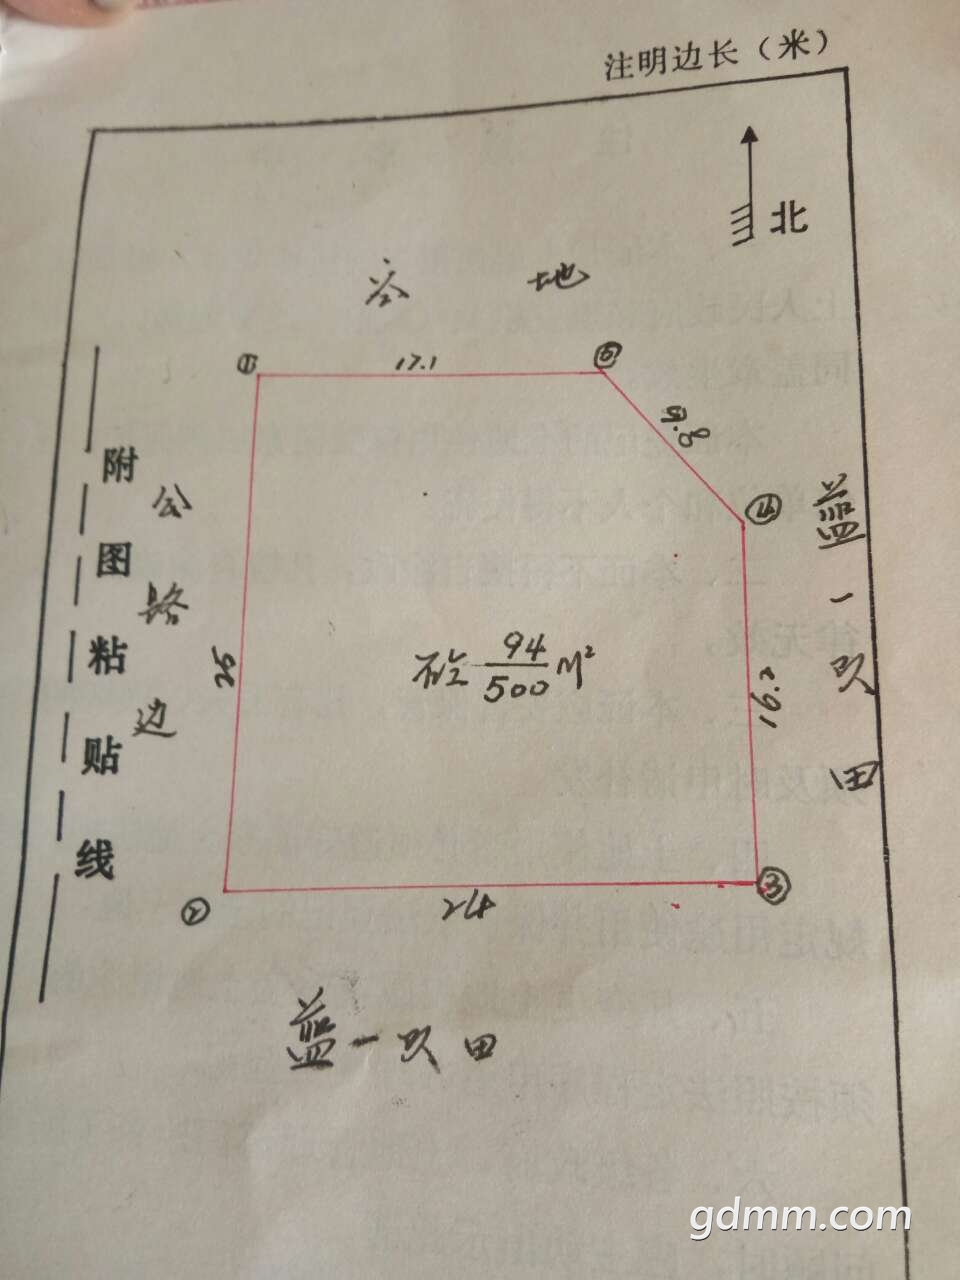 注明边长（米）
北
空地
① 17.1 ⑤
9.8
④
附图粘贴线
公路边
25
砼 94/500 M²
16.2
蓝一队田
② 24 ③
蓝一队田
gdmm.com